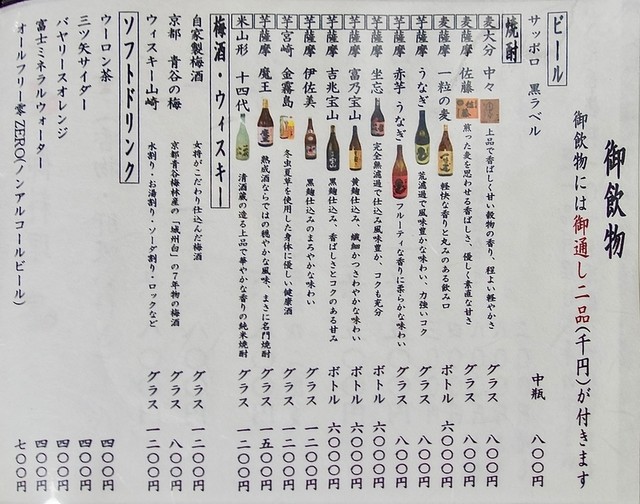 御飲物
御飲物には御通し二品(千円)が付きます
ビール
サッポロ 黒ラベル 中瓶 八〇〇円
焼酎
麦 大分 中々 上品で香ばしく甘い穀物の香り、程よい軽やかさ グラス 八〇〇円
麦 薩摩 佐藤 煎った麦を思わせる香ばしさ、優しく素直な甘さ グラス 八〇〇円
麦 薩摩 一粒の麦 軽快な香りと丸みのある飲み口 ボトル 六〇〇〇円
芋 薩摩 うなぎ 荒濾過で風味豊かな味わい、力強いコク グラス 八〇〇円
芋 薩摩 赤芋 うなぎ フルーティな香りに柔らかな味わい グラス 八〇〇円
芋 薩摩 坐忘 完全無濾過で仕込み風味豊か、コクも充分 ボトル 六〇〇〇円
芋 薩摩 富乃宝山 黄麹仕込み、繊細かつさわやかな味わい ボトル 六〇〇〇円
芋 薩摩 吉兆宝山 黒麹仕込み、香ばしさとコクのある甘み ボトル 六〇〇〇円
芋 薩摩 伊佐美 黒麹仕込みのまろやかな味わい グラス 一二〇〇円
芋 宮崎 金霧島 冬虫夏草を使用した身体に優しい健康酒 グラス 一二〇〇円
芋 薩摩 魔王 熟成酒ならではの穏やかな風味、まさに名門焼酎 グラス 一五〇〇円
米 山形 十四代 清酒蔵の造る上品で華やかな香りの純米焼酎 グラス 一二〇〇円
梅酒・ウィスキー
自家製梅酒 女将がこだわり仕込んだ梅酒 グラス 一二〇〇円
京都 青谷の梅 京都青谷梅林産の「城州白」の7年物の梅酒 グラス 八〇〇円
ウィスキー山崎 水割り・お湯割り・ソーダ割り・ロックなど グラス 一二〇〇円
ソフトドリンク
ウーロン茶 四〇〇円
三ツ矢サイダー 四〇〇円
バヤリースオレンジ 四〇〇円
富士ミネラルウォーター 四〇〇円
オールフリー零 ZERO(ノンアルコールビール) 七〇〇円